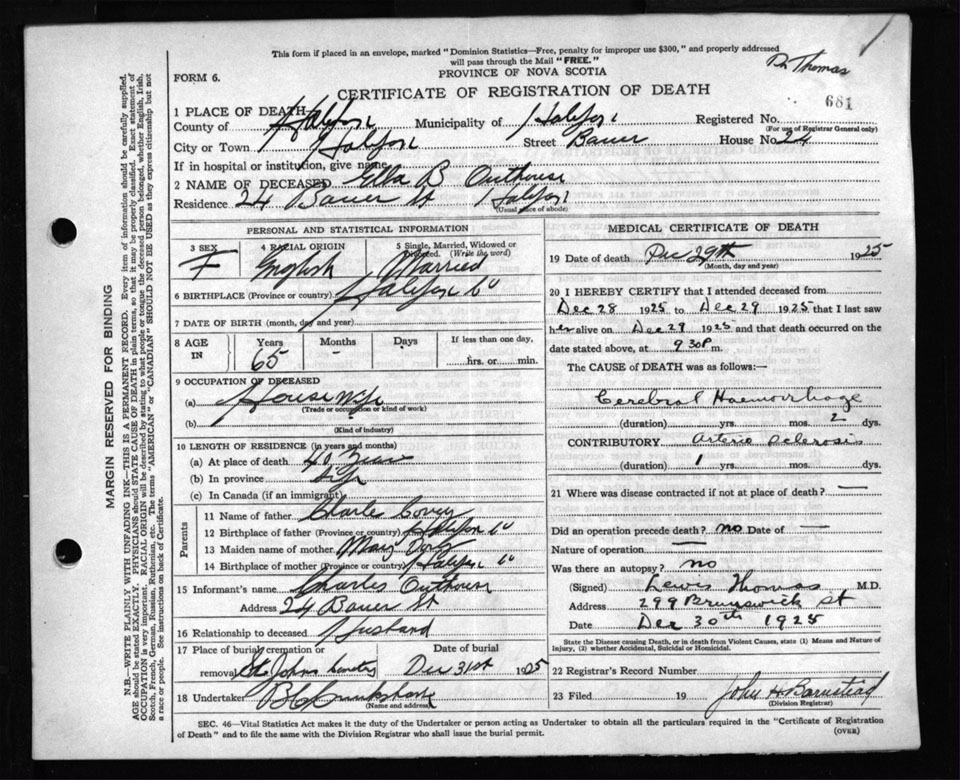 This form if placed in an envelope, marked "Dominion Statistics—Free, penalty for improper use $300," and properly addressed
will pass through the Mail "FREE."
Dr Thomas
FORM 6.
PROVINCE OF NOVA SCOTIA
CERTIFICATE OF REGISTRATION OF DEATH
681
1 PLACE OF DEATH
County of Halifax Municipality of Halifax Registered No.
(For use of Registrar General only)
City or Town Halifax Street Bauer House No. 24
If in hospital or institution, give name
2 NAME OF DECEASED Ella B Outhouse
Residence 24 Bauer St Halifax
(Usual place of abode)
PERSONAL AND STATISTICAL INFORMATION
3 SEX 4 RACIAL ORIGIN 5 Single, Married, Widowed or
Divorced (Write the word)
F English Married
6 BIRTHPLACE (Province or country) Halifax Co
7 DATE OF BIRTH (month, day and year)
8 AGE IN Years Months Days If less than one day,
65 - - hrs. or min.
9 OCCUPATION OF DECEASED
(a) Housewife
(Trade or occupation or kind of work)
(b)
(Kind of industry)
10 LENGTH OF RESIDENCE (in years and months)
(a) At place of death 40 Years
(b) In province Life
(c) In Canada (if an immigrant)
Parents
11 Name of father Charles Covey
12 Birthplace of father (Province or country) Halifax Co
13 Maiden name of mother Mary
14 Birthplace of mother (Province or country) Halifax Co
15 Informant's name Charles Outhouse
Address 24 Bauer St
16 Relationship to deceased Husband
17 Place of burial, cremation or Date of burial
removal St. Johns Cemetery Dec 31st 1925
18 Undertaker
(Name and address)
MEDICAL CERTIFICATE OF DEATH
19 Date of death Dec 29th 1925
(Month, day and year)
20 I HEREBY CERTIFY that I attended deceased from
Dec 28 1925 to Dec 29 1925 that I last saw
her alive on Dec 29 1925 and that death occurred on the
date stated above, at 9 30 P m.
The CAUSE of DEATH was as follows:—
Cerebral Haemorrhage
(duration) yrs. mos. 2 dys.
CONTRIBUTORY Arterio Sclerosis
(duration) 1 yrs. mos. dys.
21 Where was disease contracted if not at place of death? —
Did an operation precede death? no Date of —
Nature of operation —
Was there an autopsy? no
(Signed) Lewis Thomas M.D.
Address 299 Brunswick St
Date Dec 30th 1925
State the Disease causing Death, or in death from Violent Causes, state (1) Means and Nature of
Injury, (2) whether Accidental, Suicidal or Homicidal.
22 Registrar's Record Number
23 Filed 19 John H Barnstead
(Division Registrar)
SEC. 46—Vital Statistics Act makes it the duty of the Undertaker or person acting as Undertaker to obtain all the particulars required in the "Certificate of Registration
of Death" and to file the same with the Division Registrar who shall issue the burial permit.
(OVER)
MARGIN RESERVED FOR BINDING
N.B.—WRITE PLAINLY WITH UNFADING INK—THIS IS A PERMANENT RECORD. Every item of information should be carefully supplied.
AGE should be stated EXACTLY. PHYSICIANS should STATE CAUSE OF DEATH in plain terms, so that it may be properly classified. Exact statement of
OCCUPATION is very important. RACIAL ORIGIN will be described by stating to what people or tongue the deceased person belonged, whether English, Irish,
Scotch, French, German, Russian, Ruthenian, etc. The terms "AMERICAN" or "CANADIAN" SHOULD NOT BE USED as they express citizenship but not
a race or people. See instructions on back of Certificate.